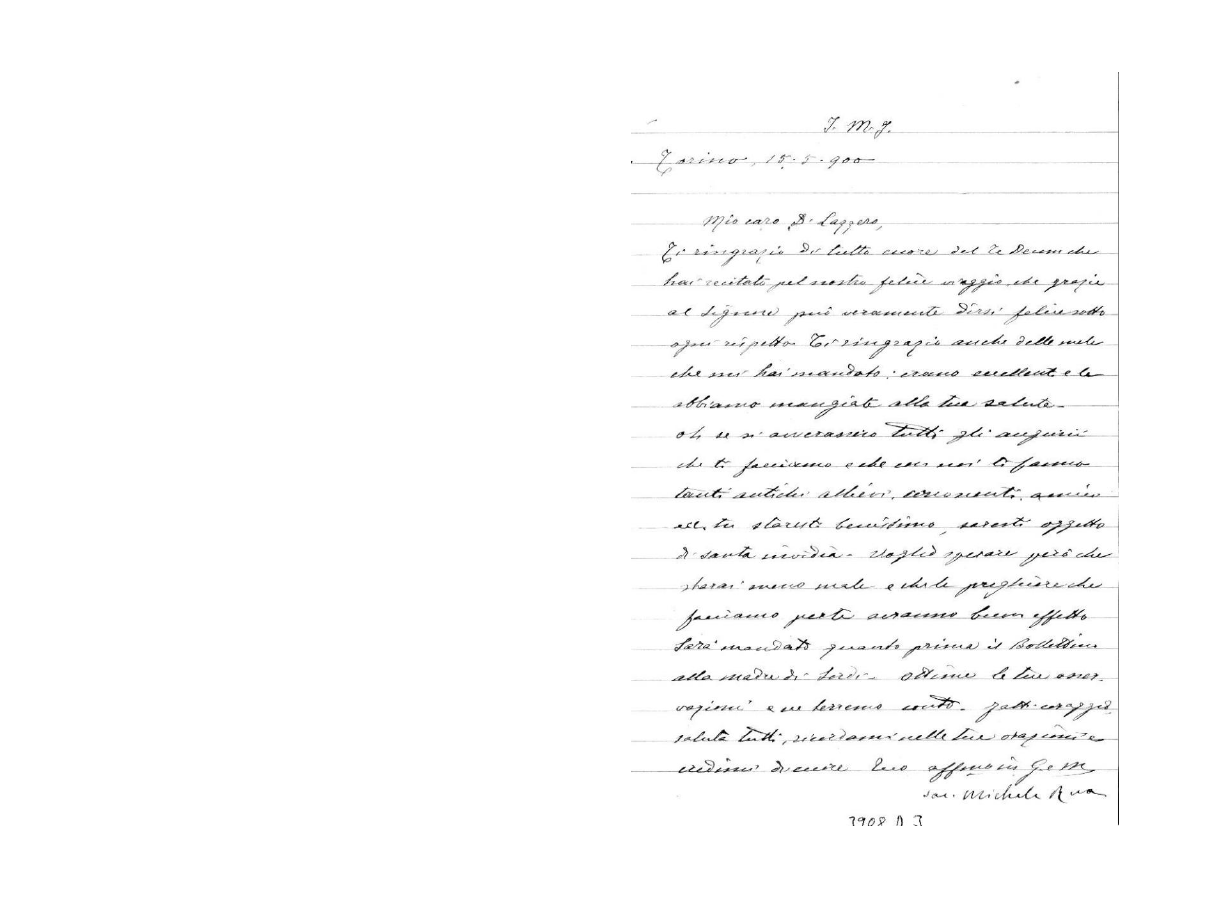 J. M. J.
Torino, 15-5-900
Mio caro D. Lazzero,
Ti ringrazio di tutto cuore del Te Deum che
hai recitato pel nostro felice viaggio, che grazie
al Signore può veramente dirsi felice sotto
ogni rispetto. Ti ringrazio anche delle mele
che mi hai mandato: erano eccellenti e le
abbiamo mangiate alla tua salute-
oh se si avverassero tutti gli augurii
che ti facciamo e che con noi ti fanno
tanti antichi allievi, conoscenti, amici
ecc. tu staresti benissimo, saresti oggetto
di santa invidia- Voglio sperare però che
starai meno male e che le preghiere che
facciamo per te avranno buon effetto
Sarà mandato quanto prima il Bollettino
alla madre di - Ottime le tue osser-
vazioni e ne terremo conto- Fatti coraggio
saluta tutti, ricordami nelle tue orazioni e
credimi di cuore Tuo affmo in G. e M.
sac. Michele Rua
3908 D 3